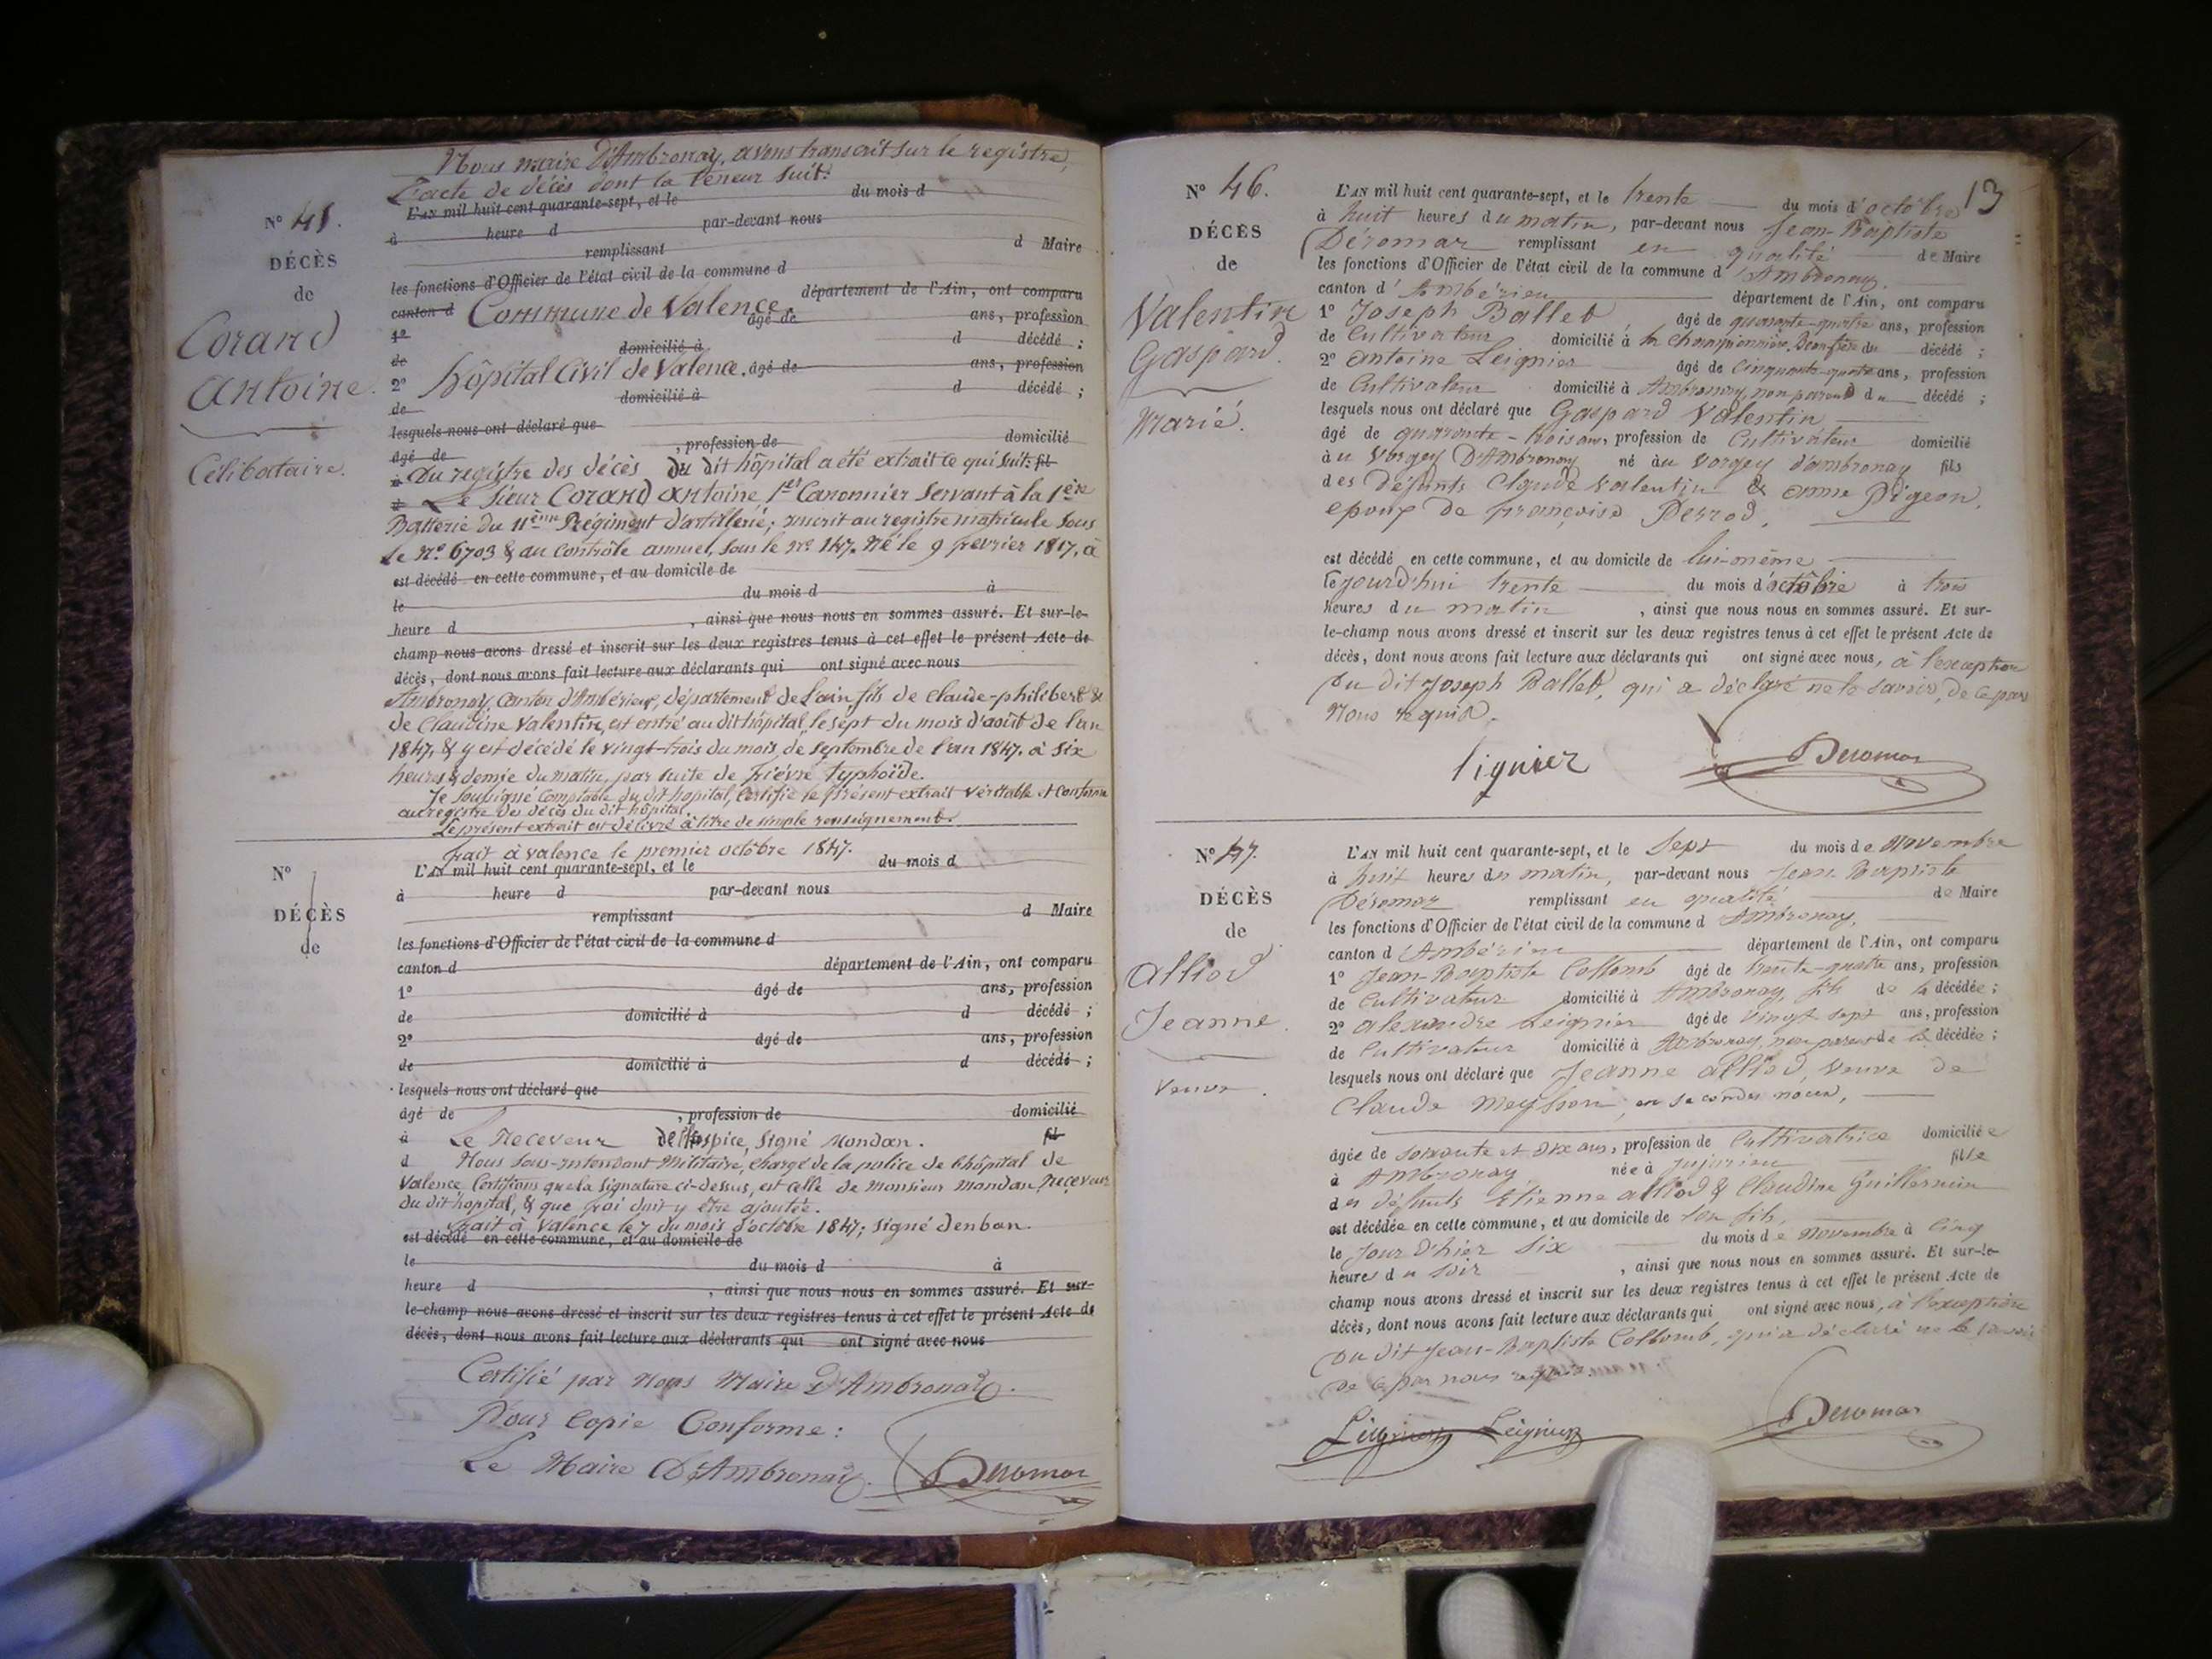 Nous maire D'Ambronay, avons transcrit sur le registre,
L'acte de décès dont la teneur suit:
N° 45.
DÉCÈS
de
Corand
Antoine.
Célibataire.
L'AN mil huit cent quarante-sept, et le du mois d
à heure d par-devant nous
remplissant d Maire
les fonctions d'Officier de l'état civil de la commune d
canton d Commune de Valence. département de l'Ain, ont comparu
1° âgé de ans, profession
de domicilié à d décédé ;
2° hôpital Civil de Valence. âgé de ans, profession
de domicilié à d décédé ;
lesquels nous ont déclaré que
âgé de , profession de domicilié
à Du registre des décès du dit hôpital a été extrait ce qui suit: fil
Le Sieur Corand Antoine 1er Canonnier Servant à la 1ère
Batterie du 11ème Régiment d'artillerie; inscrit au registre matricule sous
Le N° 6703 & au Contrôle annuel, sous le N° 147. Né le 9 février 1817, à
est décédé en cette commune, et au domicile de
le du mois d à
heure d , ainsi que nous nous en sommes assuré. Et sur-le-
champ nous avons dressé et inscrit sur les deux registres tenus à cet effet le présent Acte de
décès, dont nous avons fait lecture aux déclarants qui ont signé avec nous
Ambronay, Canton d'Ambérieux, département de L'ain, fils de Claude-philibert &
de Claudine Valentin, est entré au dit hôpital, le sept du mois d'août de l'an
1847, & y est décédé le vingt-trois du mois de septembre de l'an 1847. à six
heures & demie du matin, par suite de fièvre typhoïde.
Je soussigné Comptable du dit hôpital, Certifie le présent extrait véritable et conforme
au registre des décès du dit hôpital.
Le présent extrait est délivré à titre de simple renseignement.
Fait à Valence le premier octobre 1847.
N°
DÉCÈS
de
L'AN mil huit cent quarante-sept, et le du mois d
à heure d par-devant nous
remplissant d Maire
les fonctions d'Officier de l'état civil de la commune d
canton d département de l'Ain, ont comparu
1° âgé de ans, profession
de domicilié à d décédé ;
2° âgé de ans, profession
de domicilié à d décédé ;
lesquels nous ont déclaré que
âgé de , profession de domicilié
à Le Receveur de l'hospice, signé Mondan. fil
d Nous Sous-intendant Militaire, chargé de la police de l'hôpital de
Valence, Certifions que la signature ci-dessus, est celle de Monsieur Mondan, Receveur
du dit hôpital, & que foi doit y être ajoutée.
Fait à Valence le 7 du mois d'octobre 1847; signé
est décédé en cette commune, et au domicile de
le du mois d à
heure d , ainsi que nous nous en sommes assuré. Et sur-
le-champ nous avons dressé et inscrit sur les deux registres tenus à cet effet le présent Acte de
décès, dont nous avons fait lecture aux déclarants qui ont signé avec nous
Certifié par Nous Maire D'Ambronay.
Pour Copie Conforme :
Le Maire D'Ambronay. Deromas
13
N° 46.
DÉCÈS
de
Valentin
Gaspard.
Marié.
L'AN mil huit cent quarante-sept, et le trente du mois d'octobre
à huit heures du matin, par-devant nous Jean-Baptiste
Déromas remplissant en qualité de Maire
les fonctions d'Officier de l'état civil de la commune d'Ambronay
canton d'Ambérieu département de l'Ain, ont comparu
1° Joseph Ballet, âgé de quarante-quatre ans, profession
de Cultivateur domicilié à la Championnière, Beau-frère du décédé ;
2° Antoine Leignier âgé de Cinquante-quatre ans, profession
de Cultivateur domicilié à Ambronay, non parent du décédé ;
lesquels nous ont déclaré que Gaspard Valentin
âgé de quarante-trois ans, profession de Cultivateur domicilié
à u Vorgey D'Ambronay né au Vorgey d'ambronay fils
des défunts Claude Valentin & anne Pigeon,
epoux de françoise Perrod,
est décédé en cette commune, et au domicile de lui-même
le jourd'hui trente du mois d'octobre à trois
heures du matin , ainsi que nous nous en sommes assuré. Et sur-
le-champ nous avons dressé et inscrit sur les deux registres tenus à cet effet le présent Acte de
décès, dont nous avons fait lecture aux déclarants qui ont signé avec nous, à l'exception
Du dit Joseph Ballet, qui a déclaré ne le savoir, de ce par
Nous requis.
lignier Deromas
N° 47.
DÉCÈS
de
Alliod
Jeanne.
Veuve.
L'AN mil huit cent quarante-sept, et le Sept du mois de Novembre
à huit heures du matin, par-devant nous Jean-Baptiste
Déromas remplissant en qualité de Maire
les fonctions d'Officier de l'état civil de la commune d Ambronay,
canton d'Ambérieu département de l'Ain, ont comparu
1° Jean-Baptiste Collomb âgé de trente-quatre ans, profession
de Cultivateur domicilié à Ambronay, fils de la décédée ;
2° Alexandre Leignier âgé de Vingt sept ans, profession
de Cultivateur domicilié à Ambronay, non parent de la décédée ;
lesquels nous ont déclaré que Jeanne Alliod, Veuve de
Claude en secondes noces,
âgée de soixante et dix ans, profession de Cultivatrice domiciliée
à Ambronay née à Jujurieu fille
des défunts Etienne Alliod & Claudine Guillermin
est décédée en cette commune, et au domicile de son fils,
le Jour d'hier six du mois de Novembre à Cinq
heures du soir , ainsi que nous nous en sommes assuré. Et sur-le-
champ nous avons dressé et inscrit sur les deux registres tenus à cet effet le présent Acte de
décès, dont nous avons fait lecture aux déclarants qui ont signé avec nous, à l'exception
Du dit Jean-Baptiste Collomb, qui a déclaré ne le savoir
De ce par nous requis.
Leignier Leignier Deromas